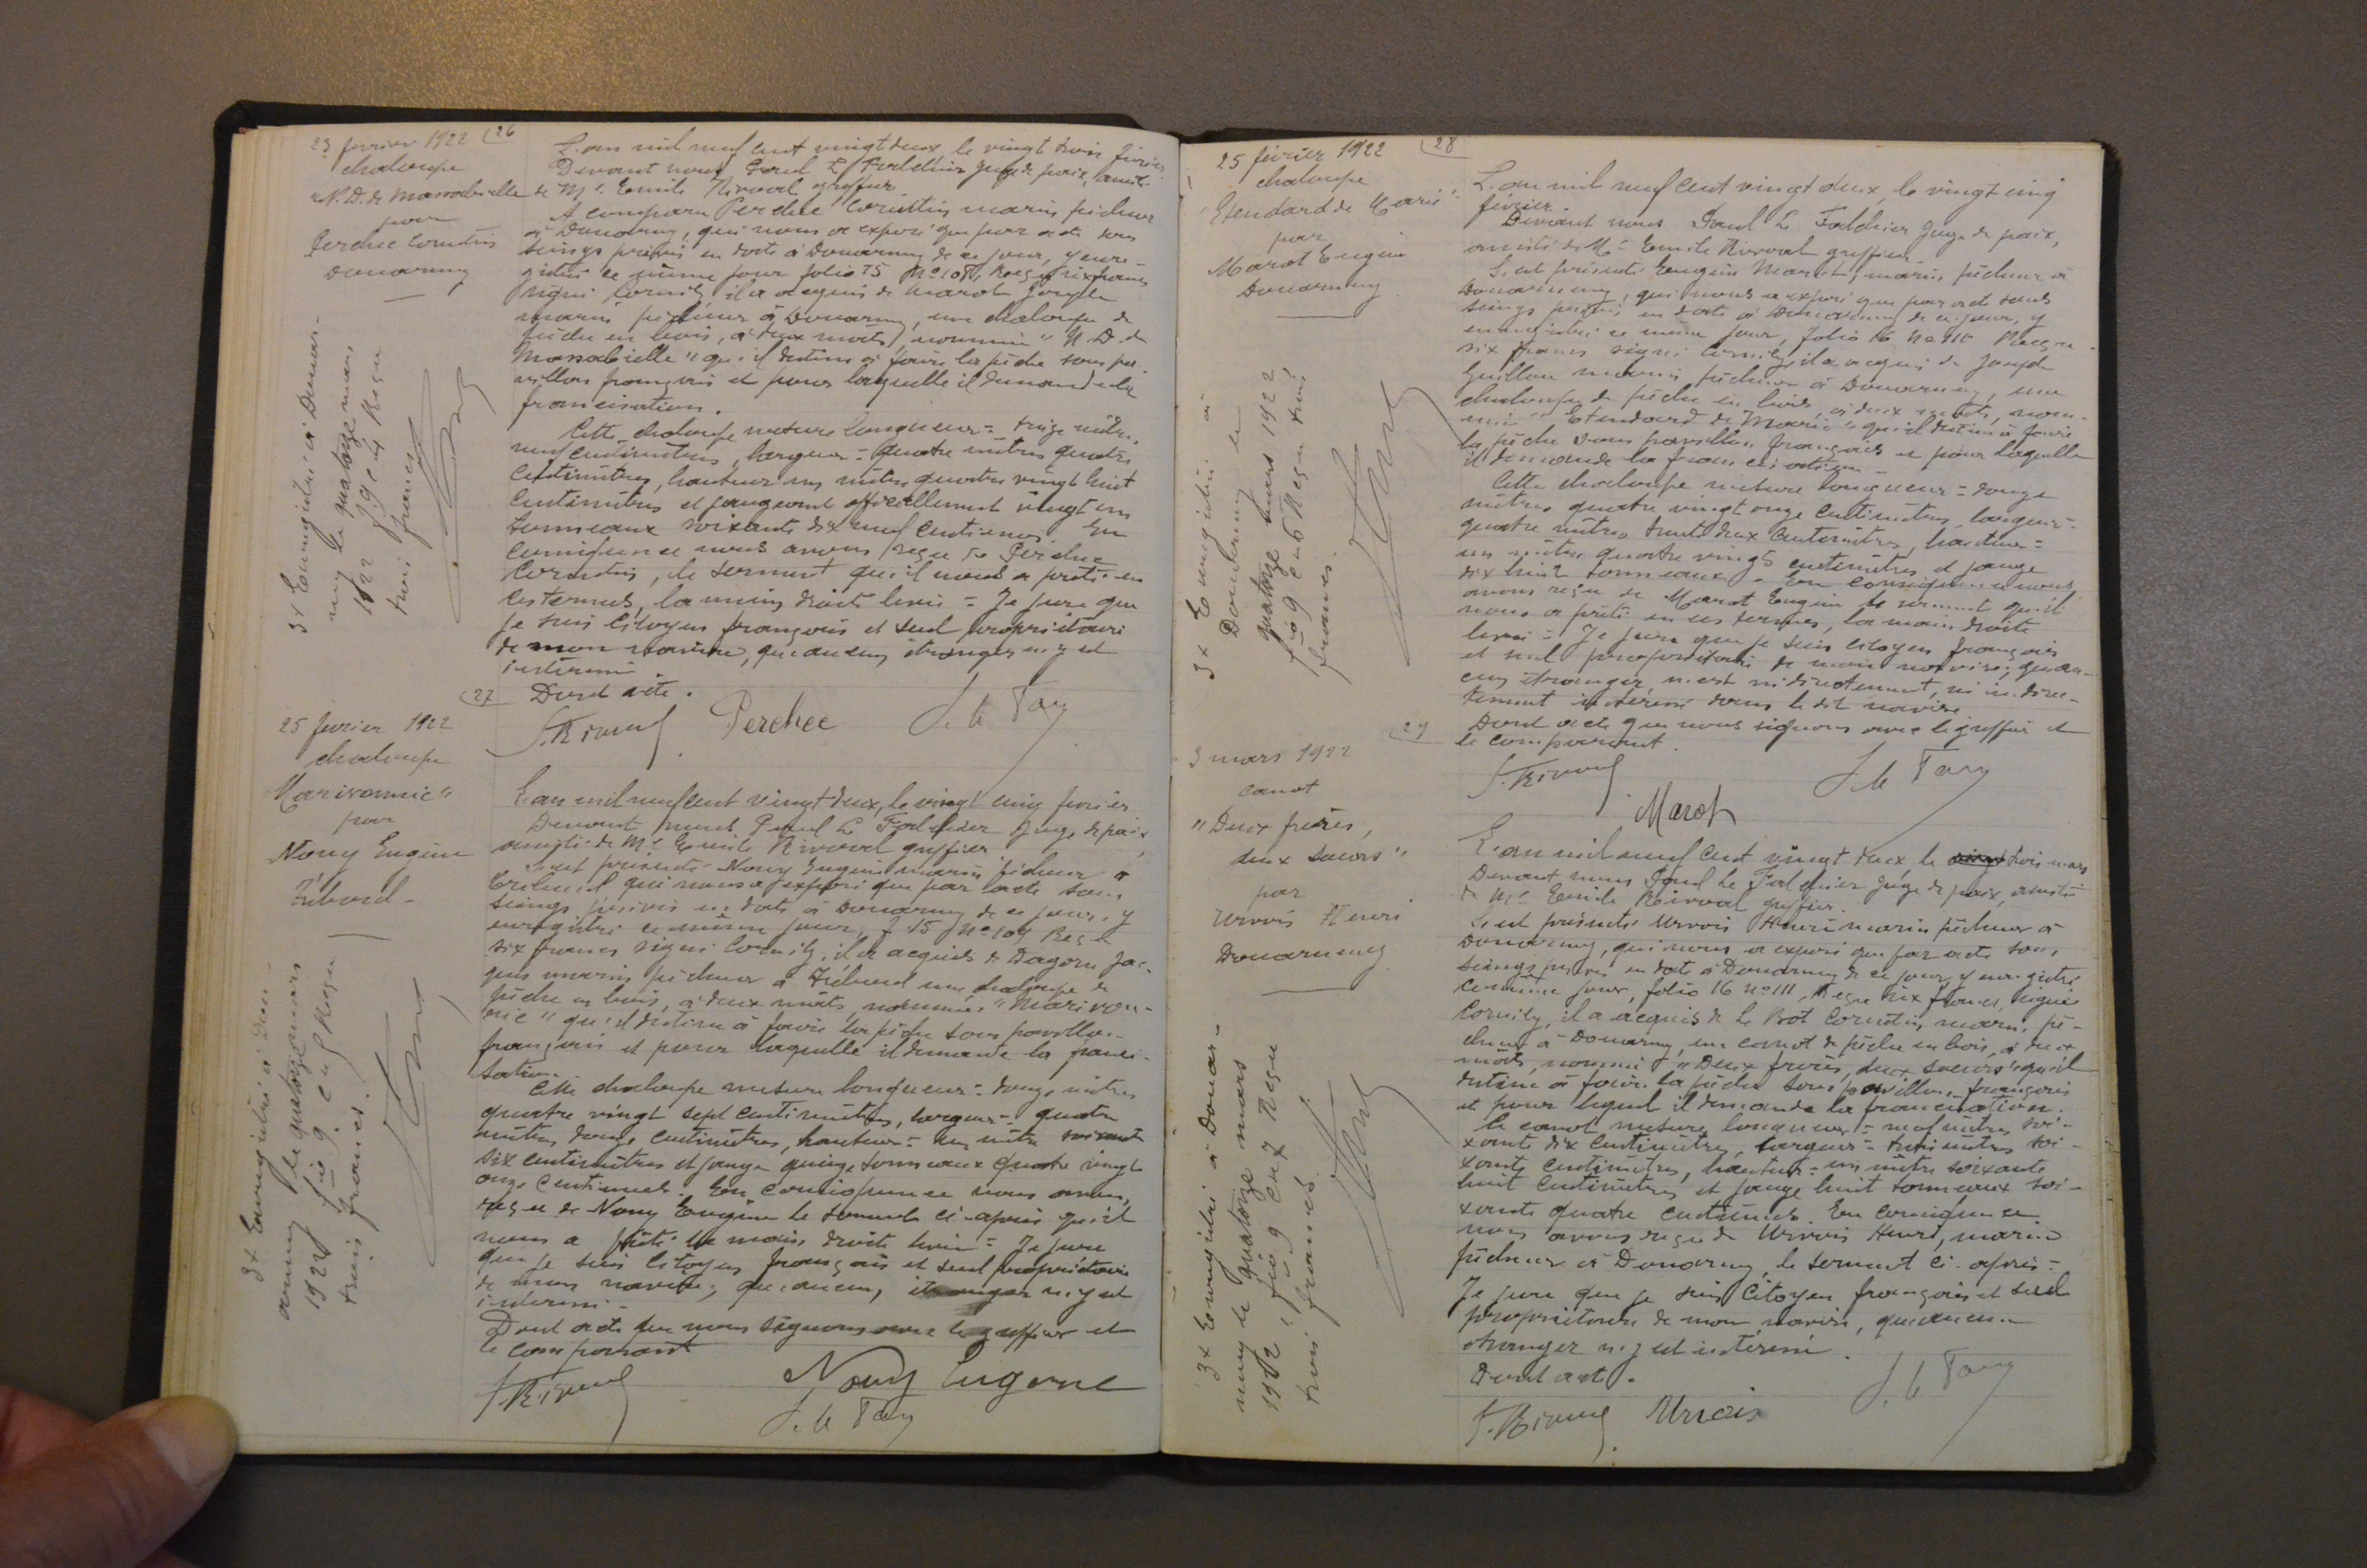 23 fevrier 1922
chaloupe
"N. D. de Massabielle
pour
Perchec Corentin
Douarnenez
3f Enregistré à Douar-
nez le quatorze mars
1922 fo 9 c 4 Reçu
trois francs
26
L'an mil neuf cent vingt deux le vingt trois février
Devant nous Paul Le Falchier juge de paix, assisté
de Me Emile Rivoal greffier
A comparu Perchec Corentin marin pêcheur
à Douarnenez, qui nous a exposé que par acte sous
seings privés en date à Douarnenez de ce jour, y enre-
gistré ce même jour folio 15 No 108, Reçu six francs
signé Cornily il a acquis de Marot Joseph
marin pêcheur à Douarnenez, une chaloupe de
pêche en bois, à deux mâts, nommée "N. D. de
Massabielle" qu'il destine à faire la pêche sous pa-
villon français et pour laquelle il demande la
francisation.
Cette chaloupe mesure longueur = treize mètres
neuf centimètres, largeur = quatre mètres quatre
centimètres, hauteur un mètre quatre vingt huit
centimètres et jaugeant officiellement vingt un
tonneaux soixante dix neuf centièmes. En
conséquence nous avons reçu de Perchec
Corentin, le serment qu'il nous a prêté en
ces termes, la main droite levée = Je jure que
je suis citoyen français et seul propriétaire
de mon navire, qu'aucun étranger n'y est
intéressé
Dont acte.
E. Rivoal Perchec J. le Fay
27
25 fevrier 1922
chaloupe
Marivonnic"
pour
Nouy Eugène
Tréboul -
3f Enregistré à Dou-
arnenez le quatorze mars
1922 fo 9 c 5 Reçu
trois francs.
L'an mil neuf cent vingt deux, le vingt cinq février
Devant nous Paul Le Falchier Juge de paix,
assisté de Me Emile Rivoal greffier
S'est présenté Nouy Eugène marin pêcheur à
Tréboul qui nous a exposé que par acte sous
seings privés en date à Douarnenez de ce jour, y
enregistré ce même jour, f 15 No 109 Reçu
six francs signé Cornily, il a acquis de Dagorn Jac-
ques marin pêcheur à Tréboul une chaloupe de
pêche en bois, à deux mâts, nommée "Marivon-
nic" qu'il destine à faire la pêche sous pavillon
français et pour laquelle il demande la franci-
sation.
Cette chaloupe mesure longueur = douze mètres
quatre vingt sept centimètres, largeur = quatre
mètres douze centimètres, hauteur = un mètre soixante
six centimètres et jauge quinze tonneaux quatre vingt
onze centièmes. En conséquence nous avons
reçu de Nouy Eugène le serment ci-après qu'il
nous a prêté la main droite levée = Je jure
que je suis citoyen français et seul propriétaire
de mon navire, qu'aucun, étranger n'y est
intéressé -
Dont acte que nous signons avec le greffier et
le comparant
E. Rivoal Nouy Eugene
J. le Fay
25 février 1922
chaloupe
"Etendard de Marie"
par
Marot Eugène
Douarnenez
3f Enregistré à
Douarnenez le
quatorze mars 1922
fo 9 c 6 Reçu trois
francs.
28
L'an mil neuf cent vingt deux, le vingt cinq
février
Devant nous Paul Le Falchier Juge de paix,
assisté de Me Emile Rivoal greffier
S'est présenté Eugène Marot, marin pêcheur à
Douarnenez, qui nous a exposé que par acte sous
seings privés en date à Douarnenez de ce jour, y
enregistré ce même jour, folio 16 No 110 Reçu
six francs signé Cornily il a acquis de Joseph
Guillou marin pêcheur à Douarnenez, une
chaloupe de pêche en bois, à deux mâts, nom-
mée "Etendard de Marie" qu'il destine à faire
la pêche sous pavillon français et pour laquelle
il demande la francisation -
Cette chaloupe mesure longueur = douze
mètres quatre vingt onze centimètres, largeur =
quatre mètres trente deux centimètres, hauteur =
un mètre quatre vingts centimètres et jauge
dix huit tonneaux. En conséquence nous
avons reçu de Marot Eugène le serment qu'il
nous a prêté en ces termes, la main droite
levée = Je jure que je suis citoyen français
et seul propriétaire de mon navire, qu'au-
cun étranger n'est ni directement, ni indirec-
tement intéressé dans le dit navire
Dont acte que nous signons avec le greffier et
le comparant.
E. Rivoal J. le Fay
Marot
29
3 mars 1922
canot
"Deux frères,
deux soeurs"
par
Urvois Henri
Douarnenez
3f Enregistré à Douar-
nenez le quatorze mars
1922 fo 9 c 7 Reçu
trois francs.
L'an mil neuf cent vingt deux, le vingt trois mars
Devant nous Paul Le Falchier Juge de paix, assisté
de Me Emile Rivoal greffier.
S'est présenté Urvois Henri marin pêcheur à
Douarnenez, qui nous a exposé que par acte sous
seings privés en date à Douarnenez de ce jour, y enregistré
ce même jour, folio 16 No 111, Reçu six francs, signé
Cornily, il a acquis de Le Bot Corentin marin pê-
cheur à Douarnenez, un canot de pêche en bois, à deux
mâts, nommé "Deux frères, deux soeurs" qu'il
destine à faire la pêche sous pavillon français
et pour lequel il demande la francisation.
Ce canot mesure longueur = neuf mètres soi-
xante dix centimètres, largeur = trois mètres soi-
xante centimètres, hauteur = un mètre soixante
huit centimètres et jauge huit tonneaux soi-
xante quatre centièmes. En conséquence
nous avons reçu de Urvois Henri, marin
pêcheur à Douarnenez, le serment ci-après =
Je jure que je suis Citoyen français et seul
propriétaire de mon navire, qu'aucun
étranger n'y est intéressé.
Dont acte.
E. Rivoal Urvois J. le Fay